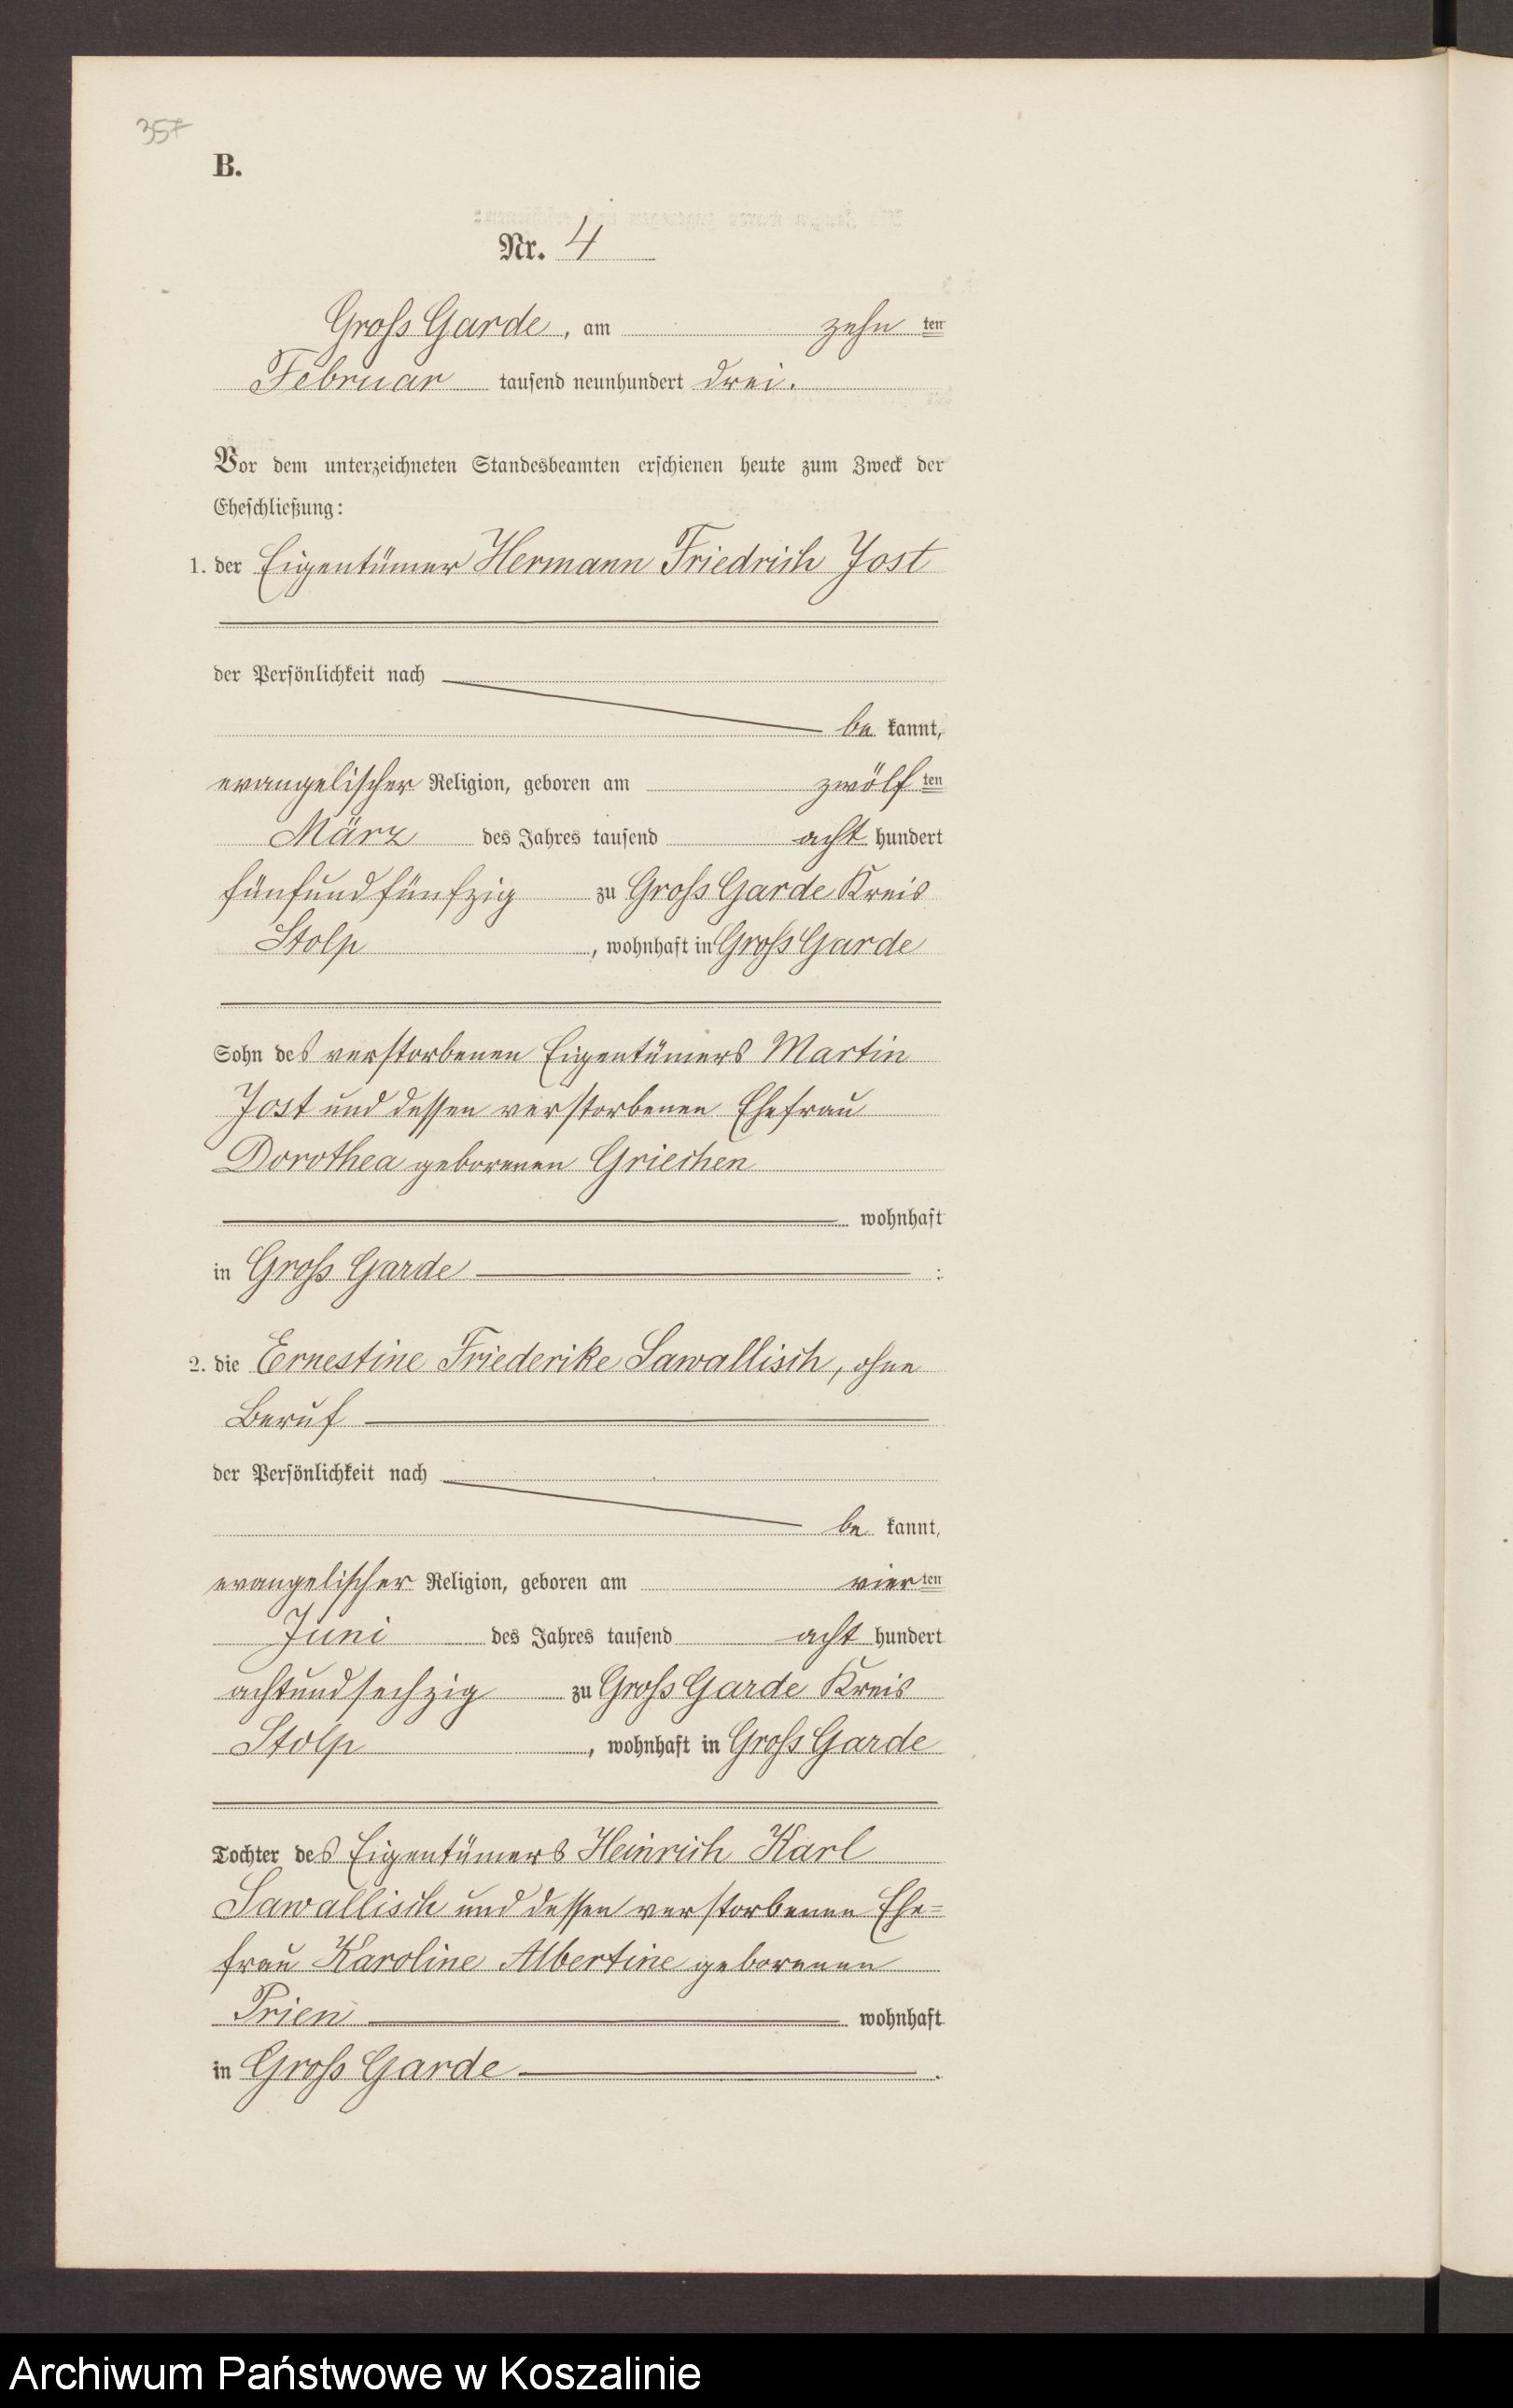 357
B.
Nr. 4
Gross Garde, am zehn ten
Februar tausend neunhundert drei.
Vor dem unterzeichneten Standesbeamten erschienen heute zum Zweck der
Eheschließung:
1. der Eigentümer Hermann Friedrich Jost
der Persönlichkeit nach
be kannt,
evangelischer Religion, geboren am zwölf ten
März des Jahres tausend acht hundert
fünfundfünfzig zu Gross Garde Kreis
Stolp, wohnhaft in Gross Garde
Sohn des verstorbenen Eigentümers Martin
Jost und dessen verstorbenen Ehefrau
Dorothea geborenen Griechen
wohnhaft
in Gross Garde :
2. die Ernestine Friederike Sawallisch, ohne
Beruf
der Persönlichkeit nach
be kannt,
evangelischer Religion, geboren am vier ten
Juni des Jahres tausend acht hundert
achtundsechzig zu Gross Garde Kreis
Stolp, wohnhaft in Gross Garde
Tochter des Eigentümers Heinrich Karl
Sawallisch und dessen verstorbenen Ehe=
frau Karoline Albertine geborenen
Prien wohnhaft
in Gross Garde.
Archiwum Państwowe w Koszalinie